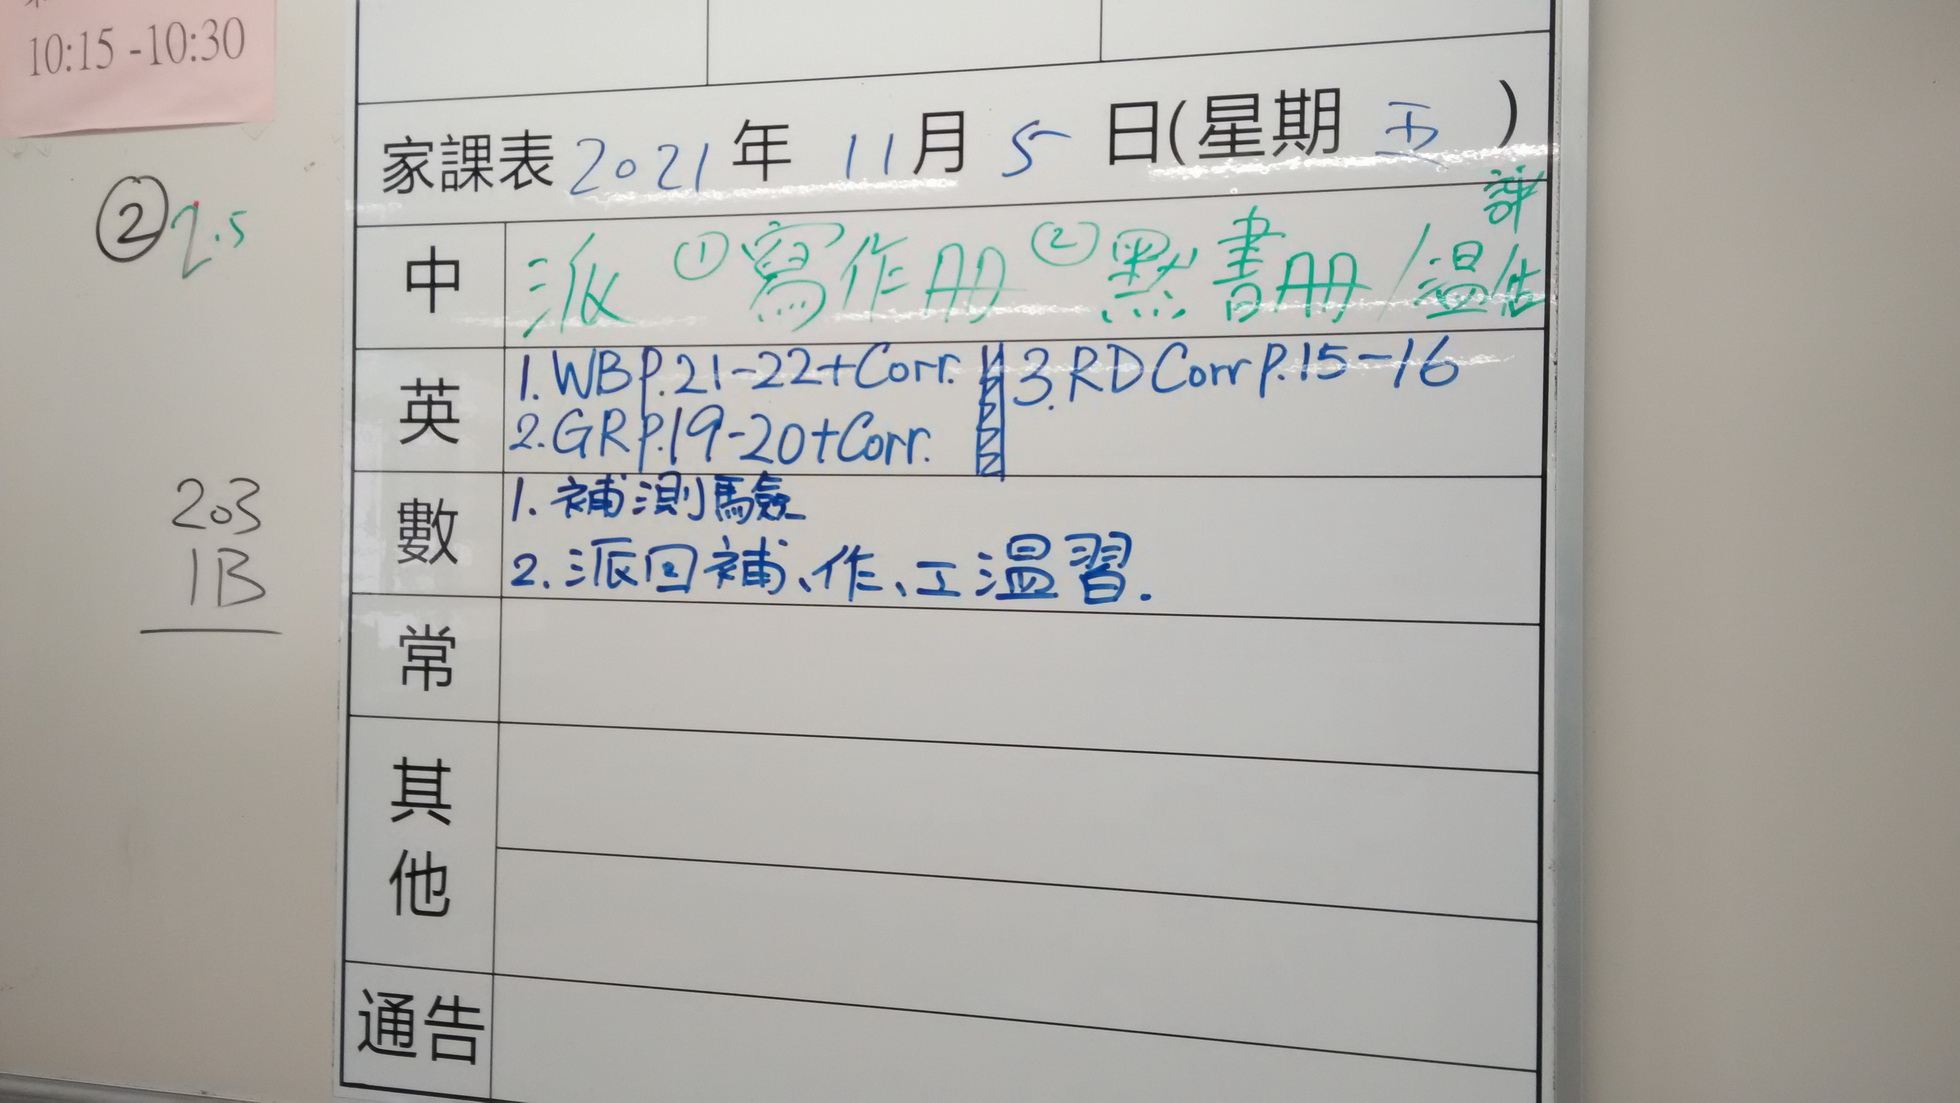 10:15 -10:30
家課表 2021 年 11 月 5 日(星期 五 )
② 2.5
中 派 ①寫作冊 ②默書冊 / 温評估
英 1. WB p.21-22+Corr. 3. RD Corr p.15-16
2. GR p.19-20+Corr.
數 1. 補測驗
2. 派回補、作、工温習.
203
1B
常
其他
通告